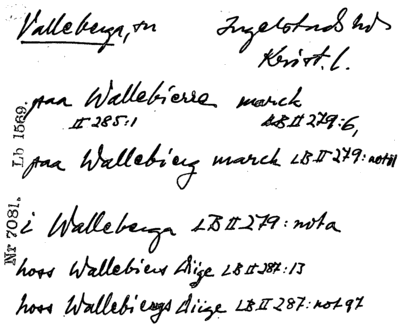 Valleberga, sn Ingelstads hd
Krist. l.
paa Wallebierre marck
II 285:1 LB II 279:6,
paa Wallebierg marck LB II 279: not
i Walleberga LB II 279: nota
hoss Wallebiers Diige LB II 287:13
hoss Wallebiergs Diige LB II 287: not 97
Nr 7081. Lb 1569.